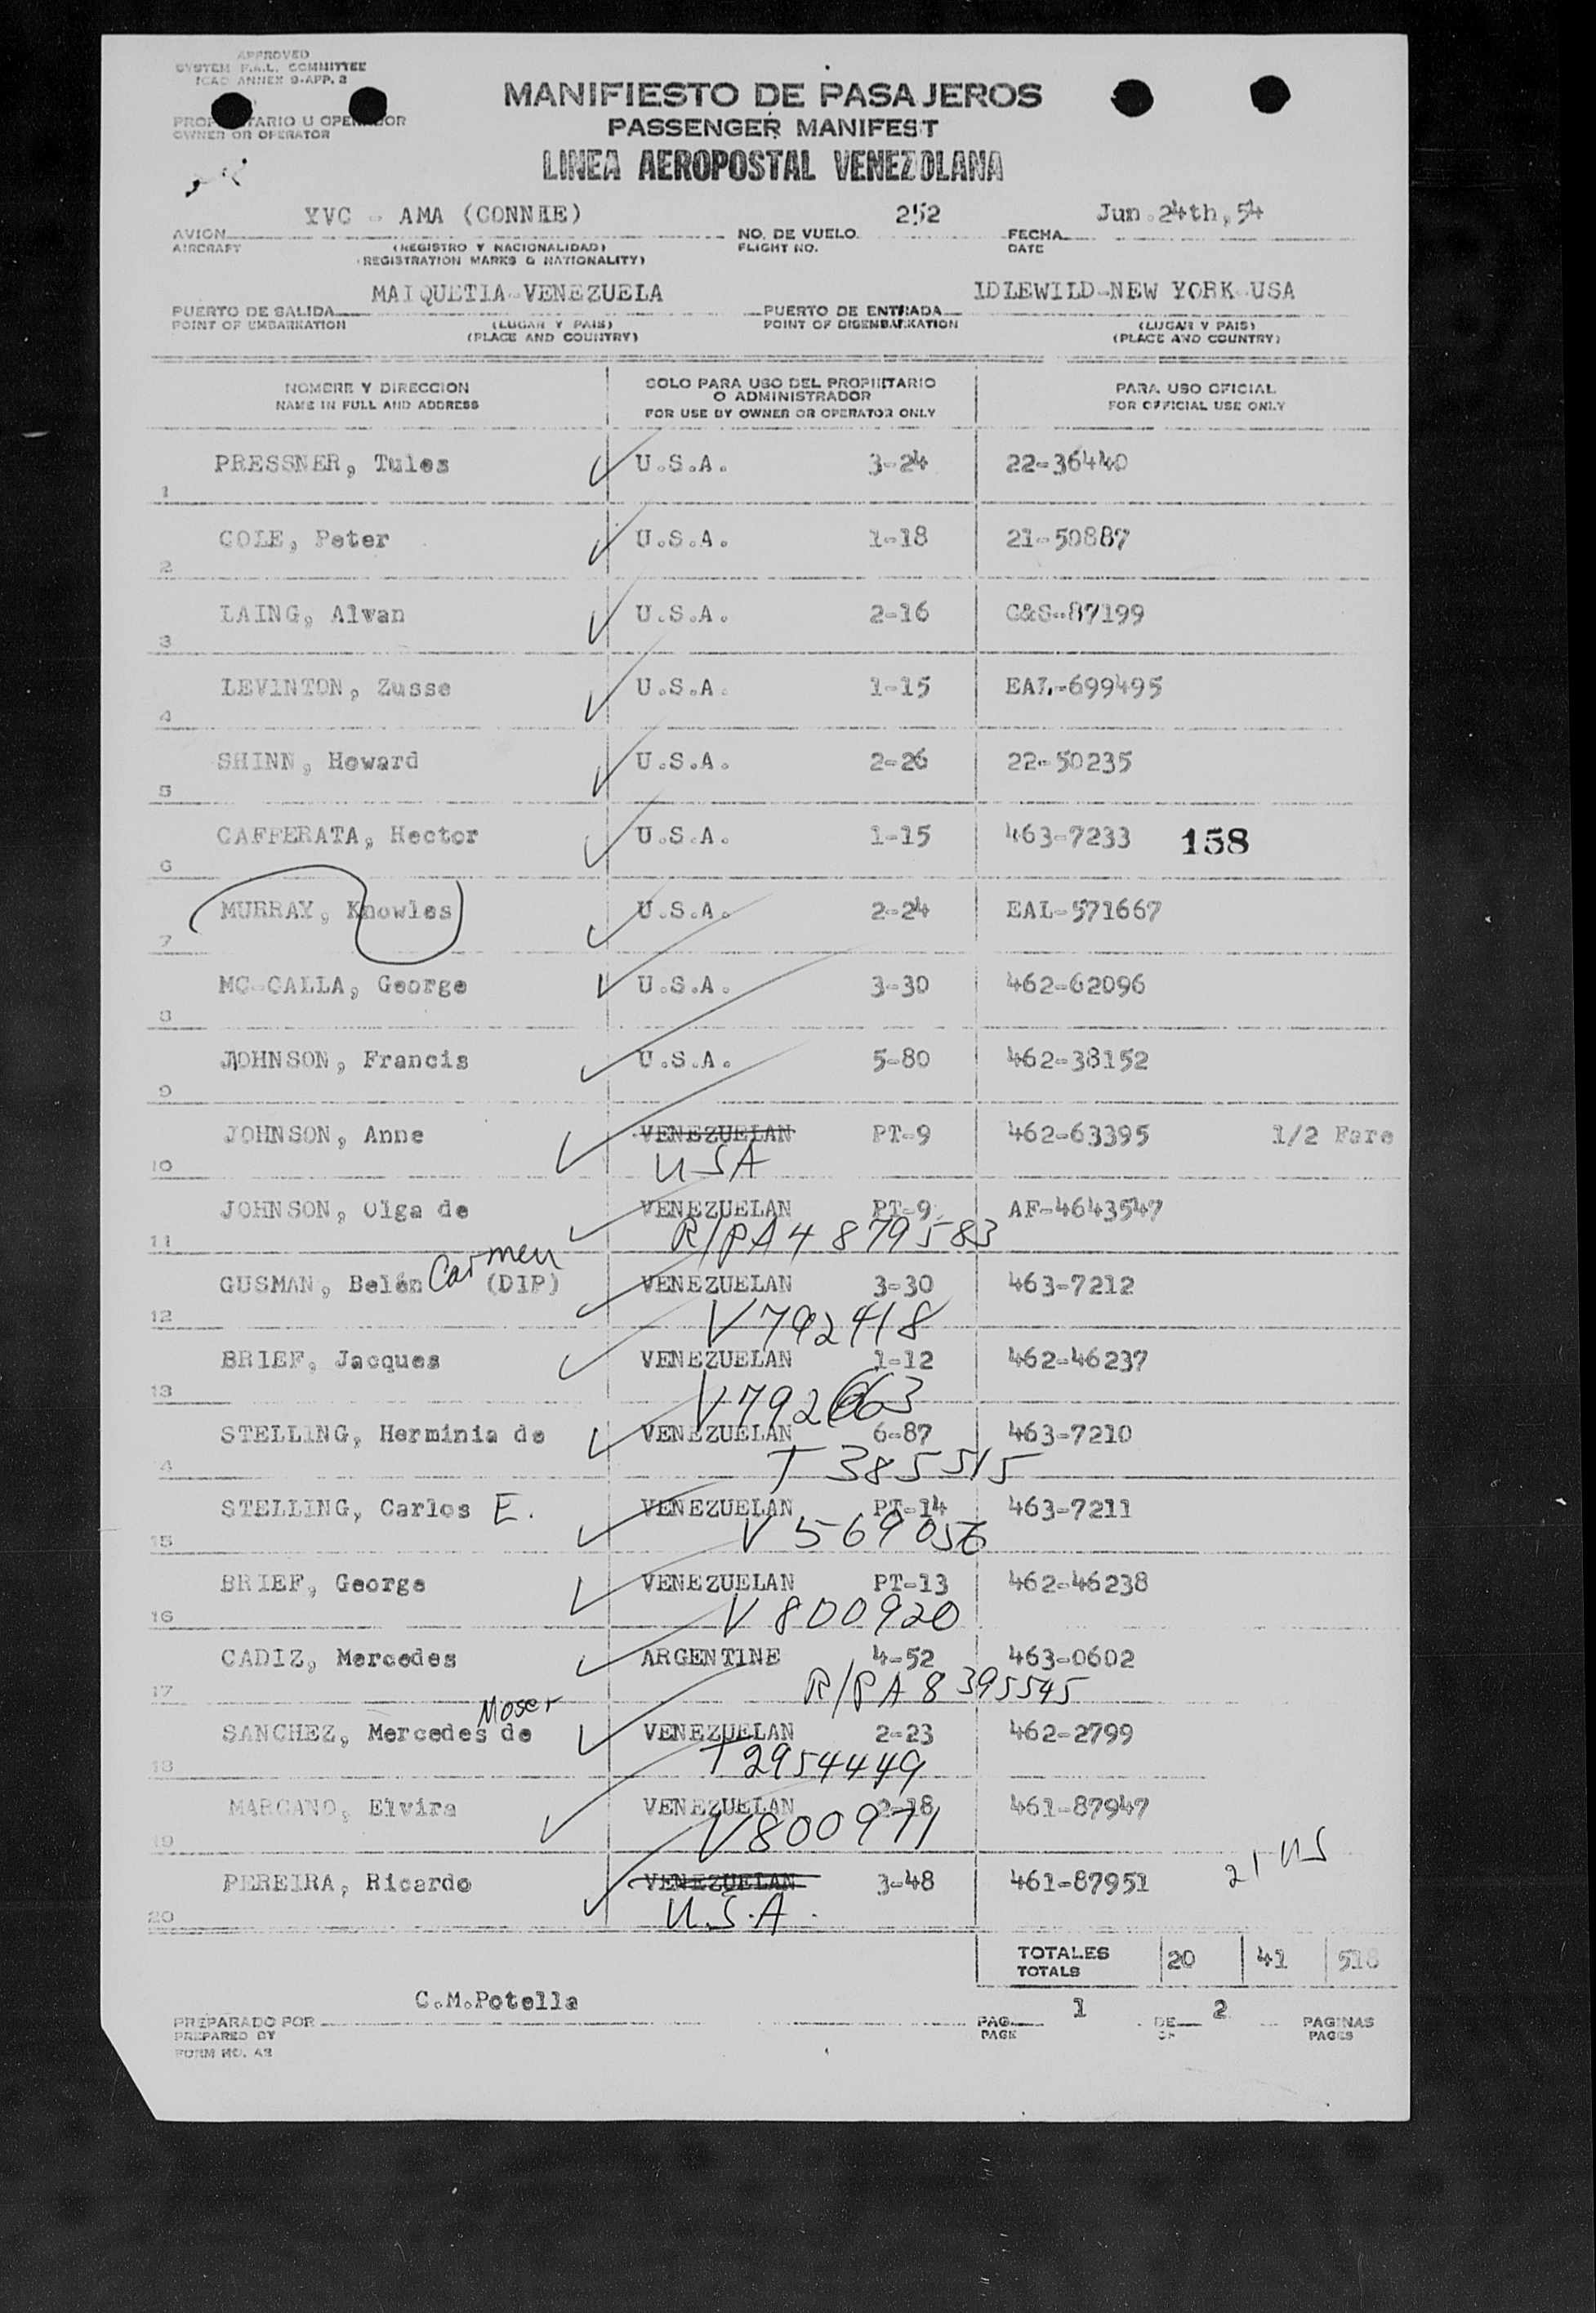 APPROVED
SYSTEM F.A.L. COMMITTEE
ICAO ANNEX 9-APP. 3
MANIFIESTO DE PASAJEROS
PROPIETARIO U OPERADOR
OWNER OR OPERATOR
PASSENGER MANIFEST
LINEA AEROPOSTAL VENEZOLANA
YVC - AMA (CONNIE) 252 Jun.24th,54
AVION NO. DE VUELO FECHA
AIRCRAFT (REGISTRO Y NACIONALIDAD) FLIGHT NO. DATE
(REGISTRATION MARKS & NATIONALITY)
MAIQUETIA-VENEZUELA IDLEWILD-NEW YORK-USA
PUERTO DE SALIDA PUERTO DE ENTRADA
POINT OF EMBARKATION (LUGAR Y PAIS) POINT OF DISEMBARKATION (LUGAR Y PAIS)
(PLACE AND COUNTRY) (PLACE AND COUNTRY)
NOMBRE Y DIRECCION SOLO PARA USO DEL PROPIETARIO PARA USO OFICIAL
NAME IN FULL AND ADDRESS O ADMINISTRADOR FOR OFFICIAL USE ONLY
FOR USE BY OWNER OR OPERATOR ONLY
PRESSNER, Tules U.S.A. 3-24 22-36440
1
COLE, Peter U.S.A. 1-18 21-50887
2
LAING, Alwan U.S.A. 2-16 C&S-87199
3
LEVINTON, Zusse U.S.A. 1-15 EAL-699495
4
SHINN, Howard U.S.A. 2-26 22-50235
5
CAFFERATA, Hector U.S.A. 1-15 463-7233 158
6
MURRAY, Knowles U.S.A. 2-24 EAL-571667
7
MC-CALLA, George U.S.A. 3-30 462-62096
8
JOHNSON, Francis U.S.A. 5-80 462-38152
9
JOHNSON, Anne VENEZUELAN PT-9 462-63395 1/2 Fare
10 USA
JOHNSON, Olga de VENEZUELAN PT-9 AF-4643547
11 R/P A4 879583
GUSMAN, Belén Carmen (DIP) VENEZUELAN 3-30 463-7212
12 V792418
BRIEF, Jacques VENEZUELAN 1-12 462-46237
13 V792663
STELLING, Herminia de VENEZUELAN 6-87 463-7210
4 T 385515
STELLING, Carlos E. VENEZUELAN PT-14 463-7211
15 V 569056
BRIEF, George VENEZUELAN PT-13 462-46238
16 V 800920
CADIZ, Mercedes ARGENTINE 4-52 463-0602
17 R/P A8 395545
Moser
SANCHEZ, Mercedes de VENEZUELAN 2-23 462-2799
18 T2954449
MARCANO, Elvira VENEZUELAN 2-18 461-87947
19 V800971
PEREIRA, Ricardo VENEZUELAN 3-48 461-87951 21 US
20 U.S.A.
TOTALES 20 41 518
TOTALS
C.M.Potella 1 2
PREPARADO POR PAG. DE PAGINAS
PREPARED BY PAGE OF PAGES
FORM NO. A2